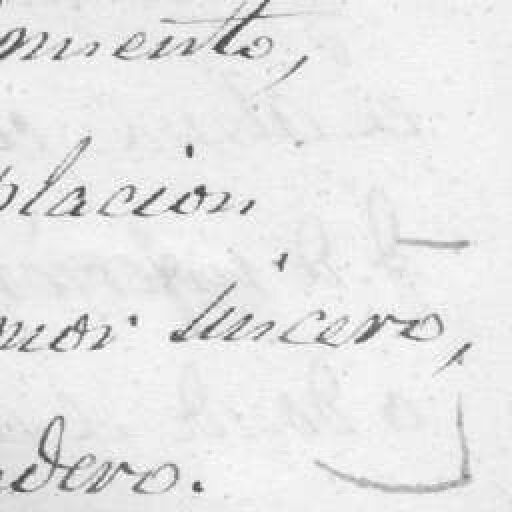 omento,
placion
mor sincero,
dero.